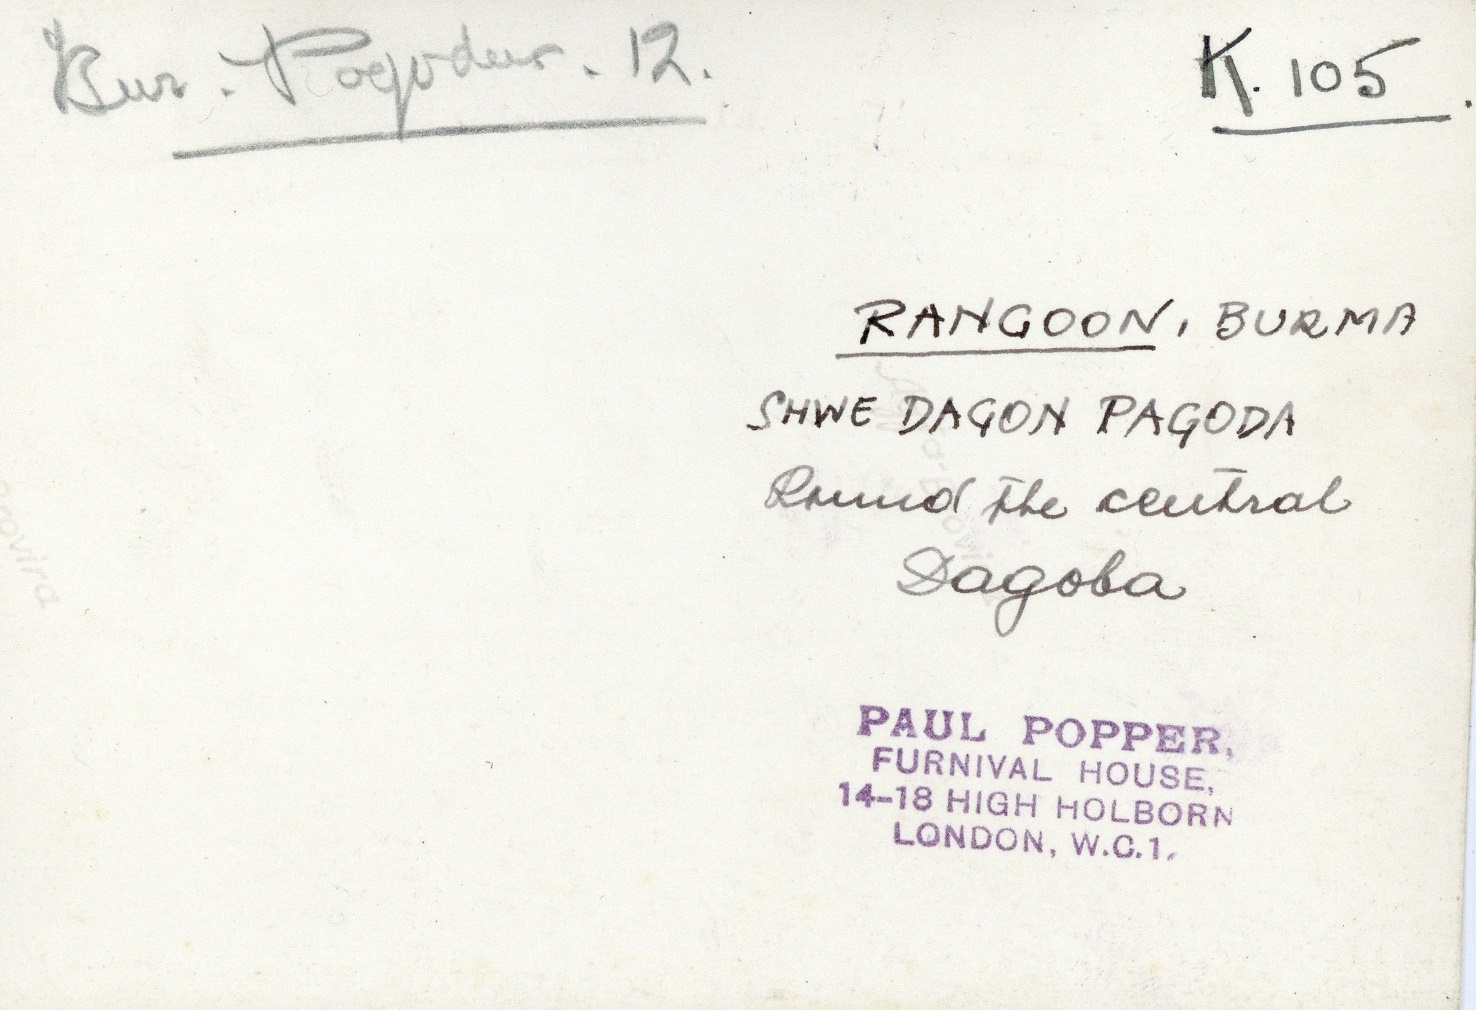 Bur. Pagoden. 12.
K. 105.
RANGOON, BURMA
SHWE DAGON PAGODA
Round the central
Dagoba
PAUL POPPER,
FURNIVAL HOUSE,
14-18 HIGH HOLBORN
LONDON, W.C.1.